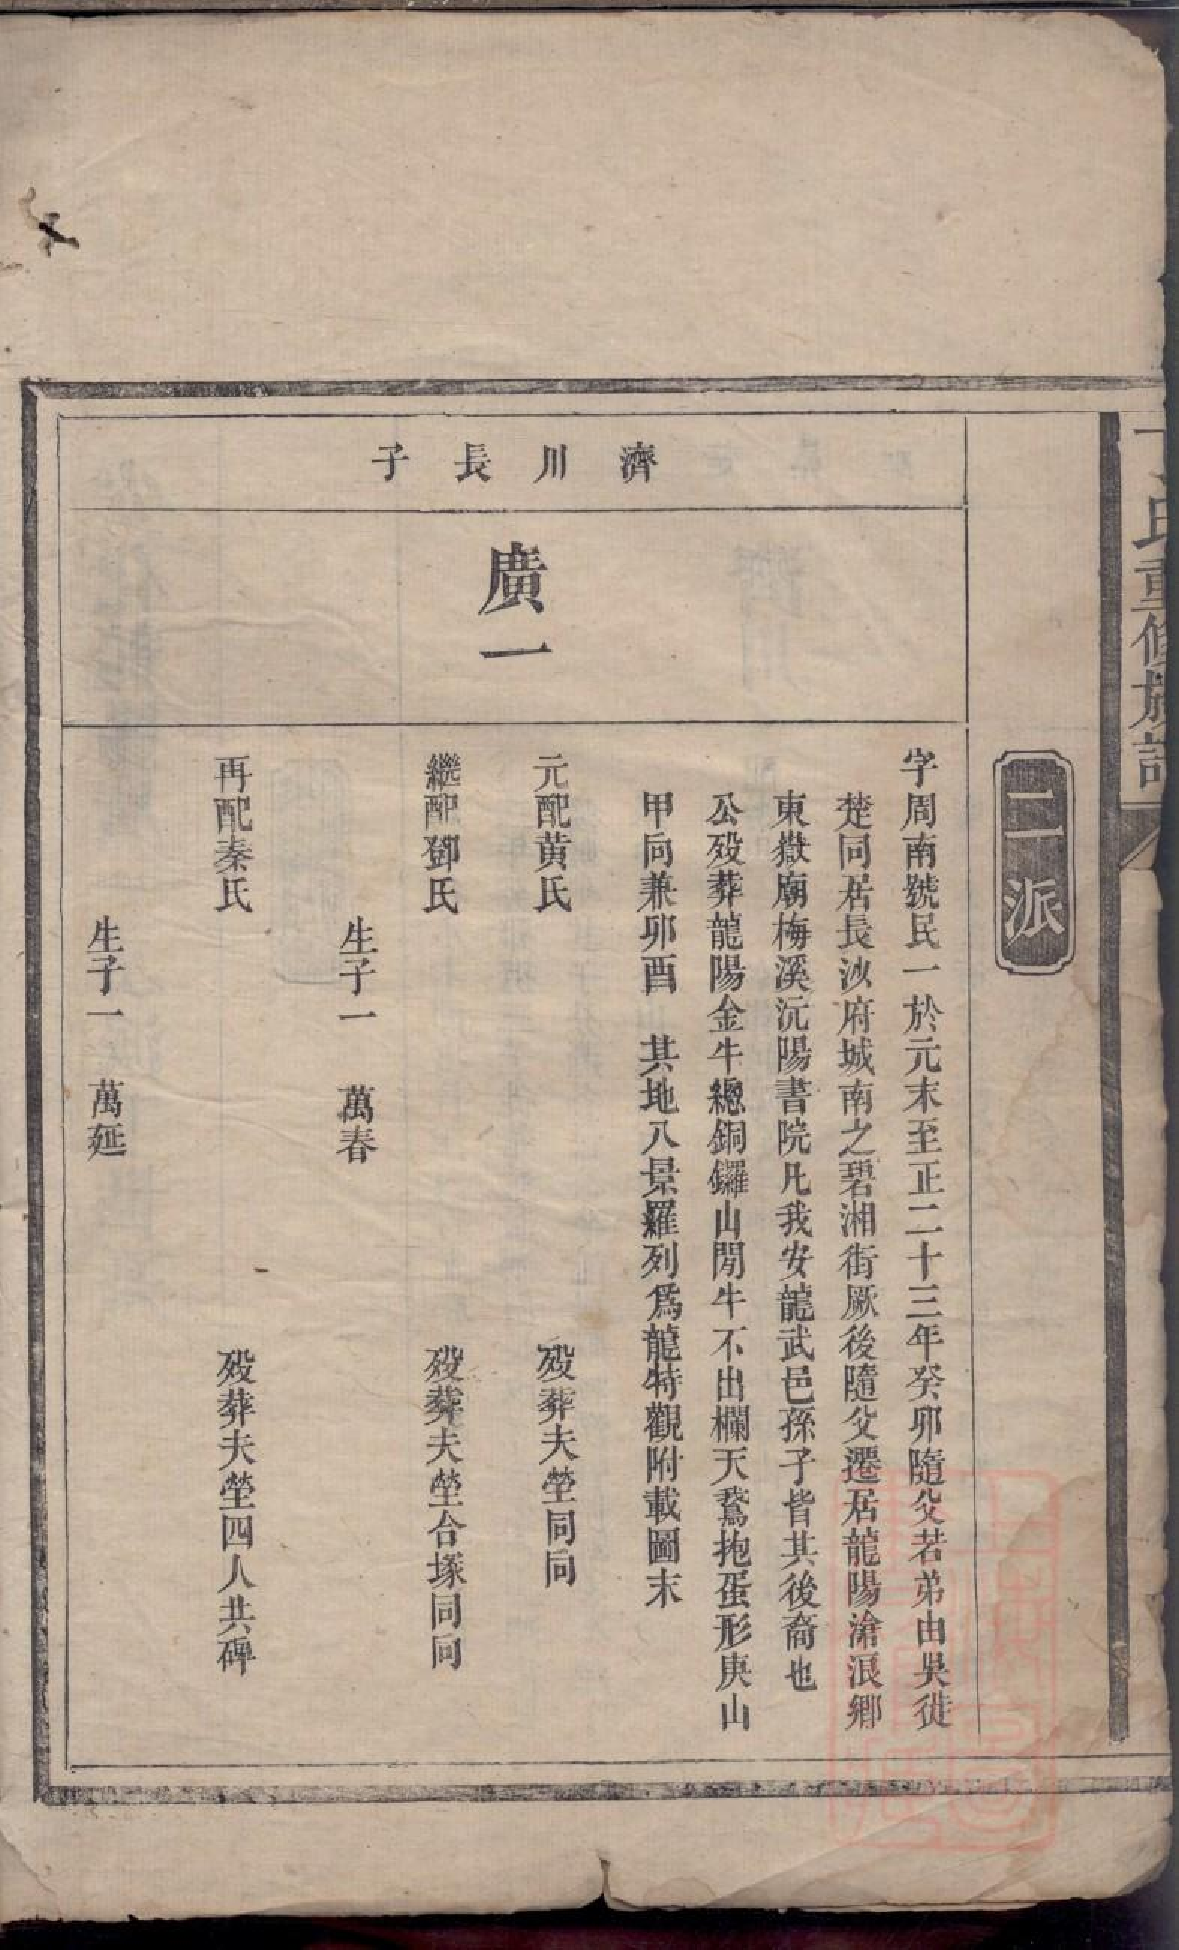 氏重修族譜
二派
濟川長子
廣一
字周南號民一於元末至正二十三年癸卯隨父若弟由吳徙
楚同居長沙府城南之碧湘街厥後隨父遷居龍陽滄浪鄉
東嶽廟梅溪沅陽書院凡我安龍武邑孫子皆其後裔也
公歿葬龍陽金牛總銅鑼山閒牛不出欄天鵞抱蛋形庚山
甲向兼卯酉 其地八景羅列爲龍特觀附載圖末
元配黃氏 歿葬夫塋同向
繼配鄧氏 歿葬夫塋合塚同向
生子一 萬春
再配秦氏 歿葬夫塋四人共碑
生子一 萬延